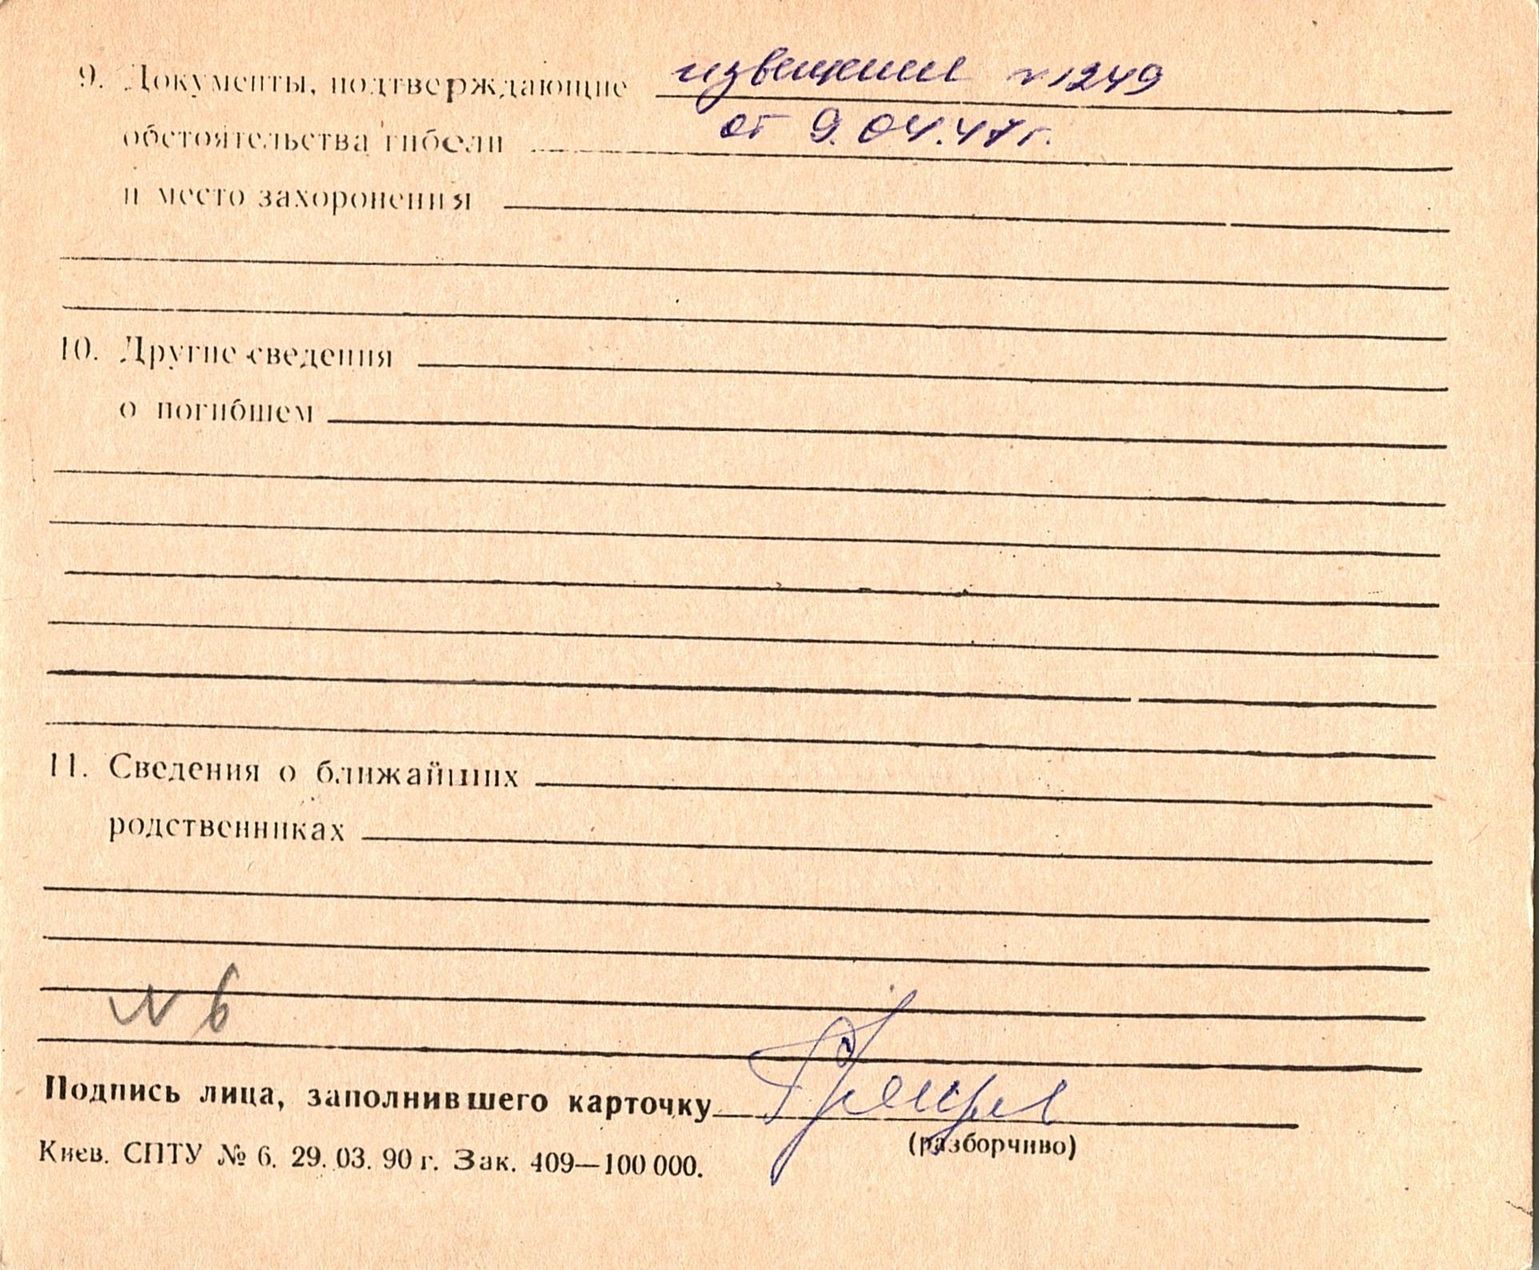 9. Документы, подтверждающие извещение №1249
обстоятельства гибели от 9.04.47 г.
и место захоронения
10. Другие сведения
о погибшем
11. Сведения о ближайших
родственниках
№ 6
Подпись лица, заполнившего карточку
(разборчиво)
Киев. СПТУ № 6. 29. 03. 90 г. Зак. 409—100 000.